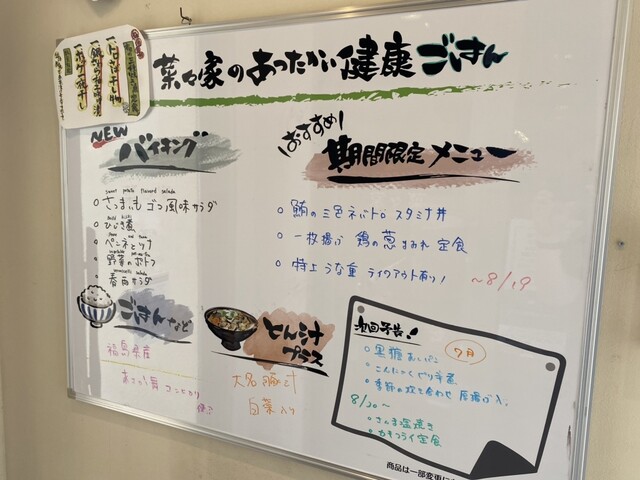 菜々家のあったかい健康ごはん
NEW
バイキング
sweet potato flavored salada
さつまいもゴマ風味サラダ
ひじき煮
ペンネとツナ
野菜のポトフ
春雨サラダ
ごはんなど
福島県産
コシヒカリ
とん汁
プラス
大名豚汁
白菜入り
おすすめ!
期間限定メニュー
鮪の三色ネバトロ スタミナ丼
一枚揚げ 鶏の葱まみれ 定食
特上うな重 テイクアウト有り!
~8/19
次回予告!
9月
黒糖あんパン
こんにゃくピリ辛煮
季節の炊き合わせ 厚揚げ入
8/20~
さんま塩焼き
カキフライ定食
商品は一部変更に